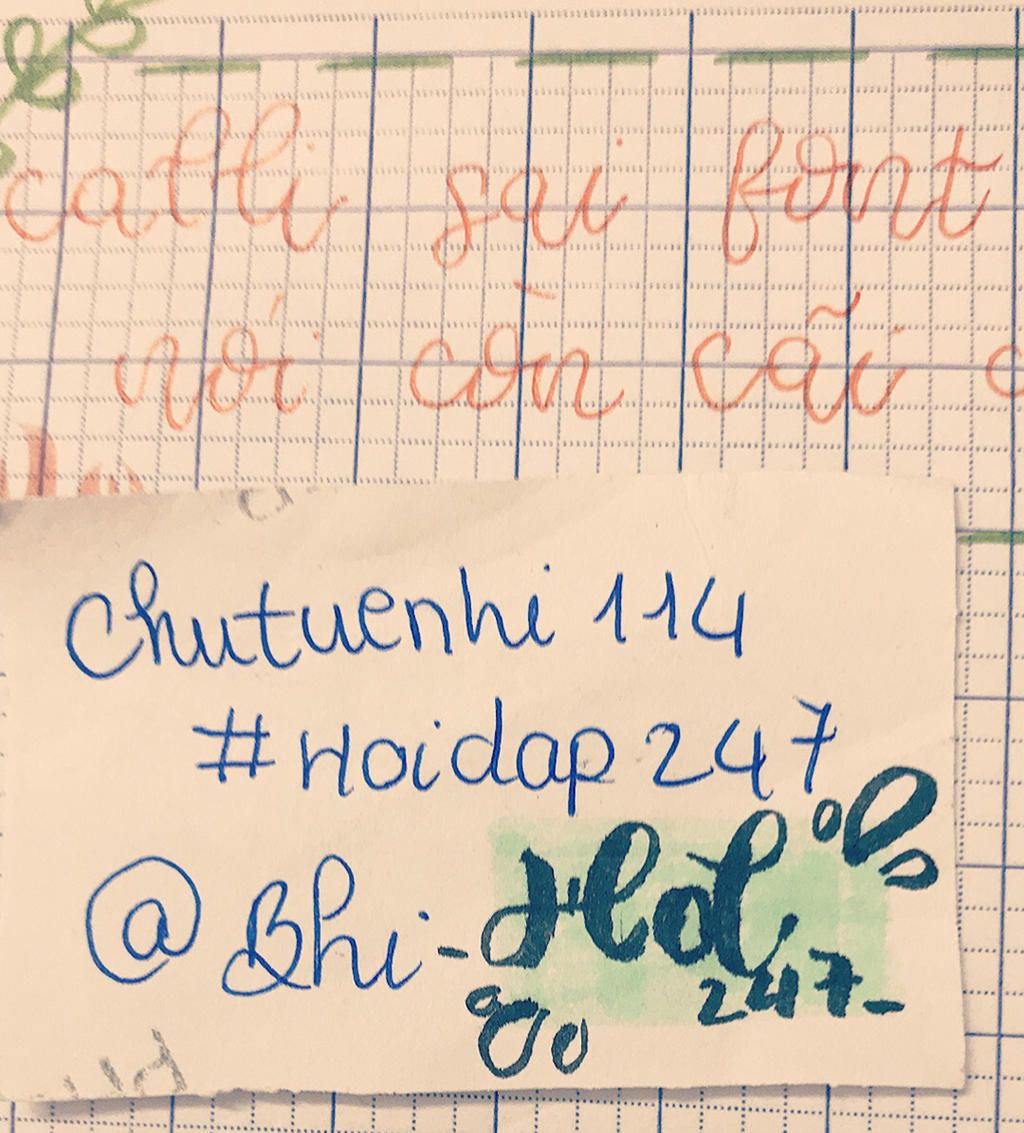 calli sai font
nói còn cãi
Chutuenhi 114
#Hoidap 247
@Bhi-
Hd
247-